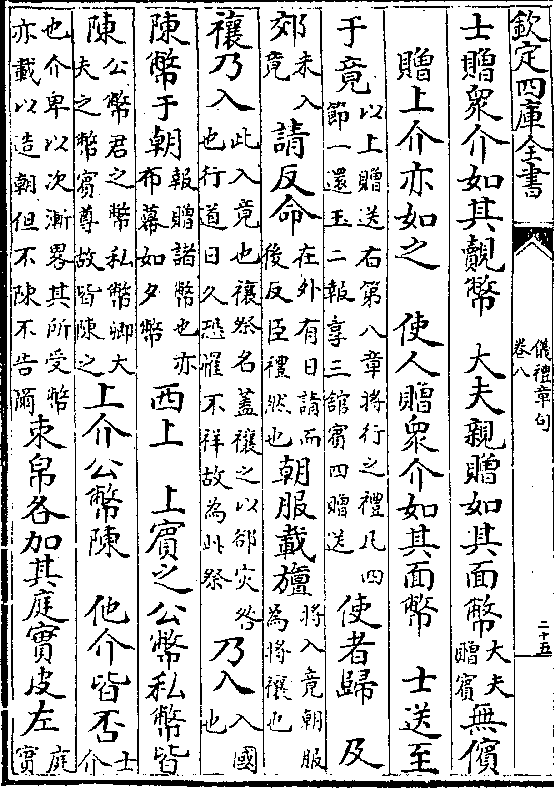 欽定四庫全書
儀禮章句
卷八
二十五
士贈衆介如其覿幣　大夫親贈如其面幣大夫贈賓無儐
贈上介亦如之　使人贈衆介如其面幣　士送至
于竟以上贈送右第八章將行之禮凡四節一還玉二報享三舘賓四贈送使者歸　及
郊未入竟請反命在外有日請而後反臣禮然也朝服載旜將入竟朝服為將禳也
禳乃入此入竟也禳祭名蓋禳之以郤災咎也行道日久恐罹不祥故為此祭乃入入國也
陳幣于朝報贈諸幣也亦布幕如夕幣西上　上賓之公幣私幣皆
陳公幣君之幣私幣卿大夫之幣賓尊故皆陳之上介公幣陳　他介皆否士介
也介卑以次漸畧其所受幣亦載以造朝但不陳不告爾束帛各加其庭實皮左庭實